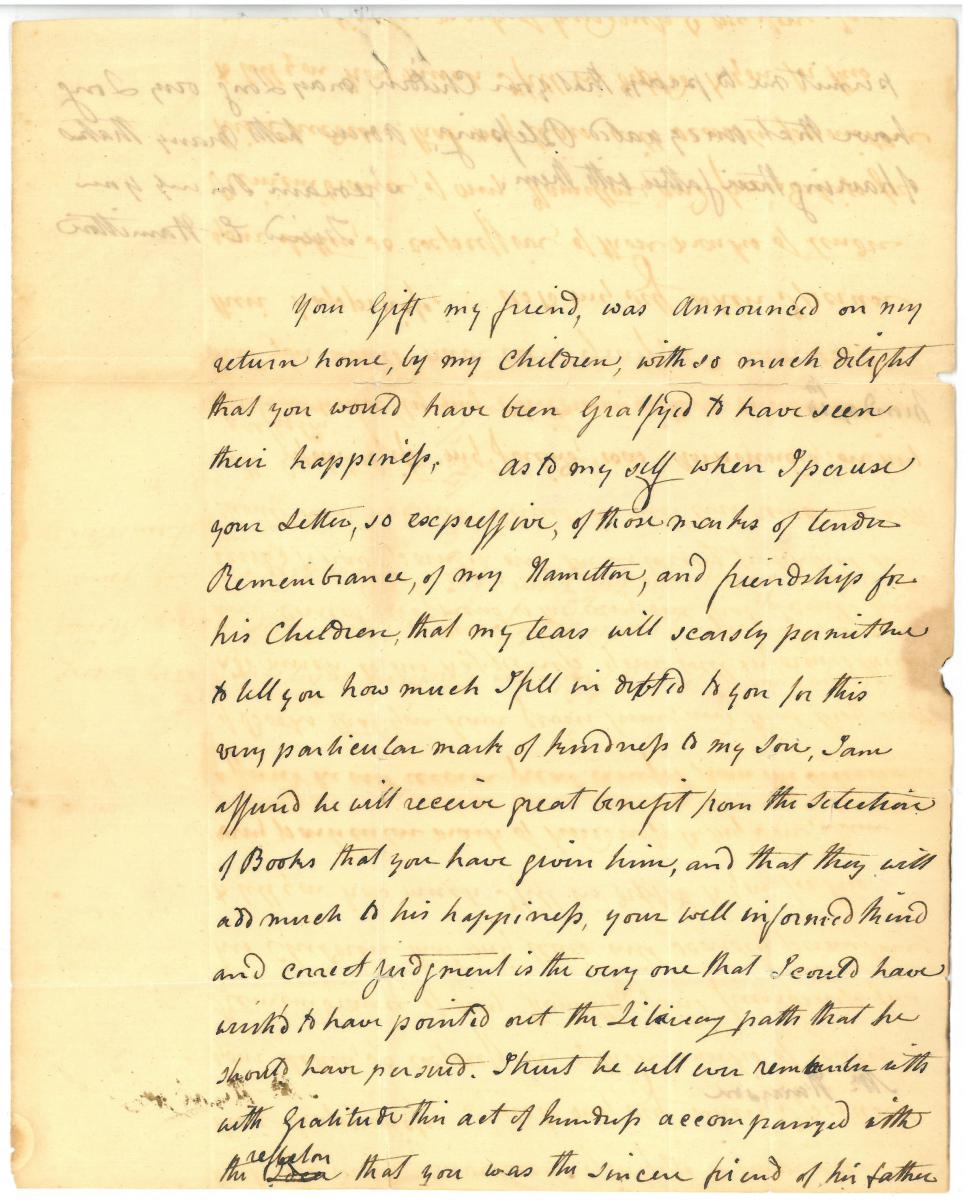 Your Gift my friend, was announced on my
return home, by my Children, with so much delight
that you would have been Gratifyed to have seen
their happiness. as to my self when I peruse
your Letter, so expressive, of those marks of tender
Remembrance, of my Hamilton, and friendship for
his Children, that my tears will scarsly permit me
to tell you how much I fell in debted to you for this
very particular mark of kindness to my son, I am
assured he will receive great benefit from the selection
of Books that you have given him, and that they will
add much to his happiness, your well informed Mind
and correct judgment is the very one that I could have
wish'd to have pointed out the Literary path that he
should have persued. I trust he will ever remember with
with Gratitude this act of kindness accompanyed with
the Idea that you was the sincere friend of his father